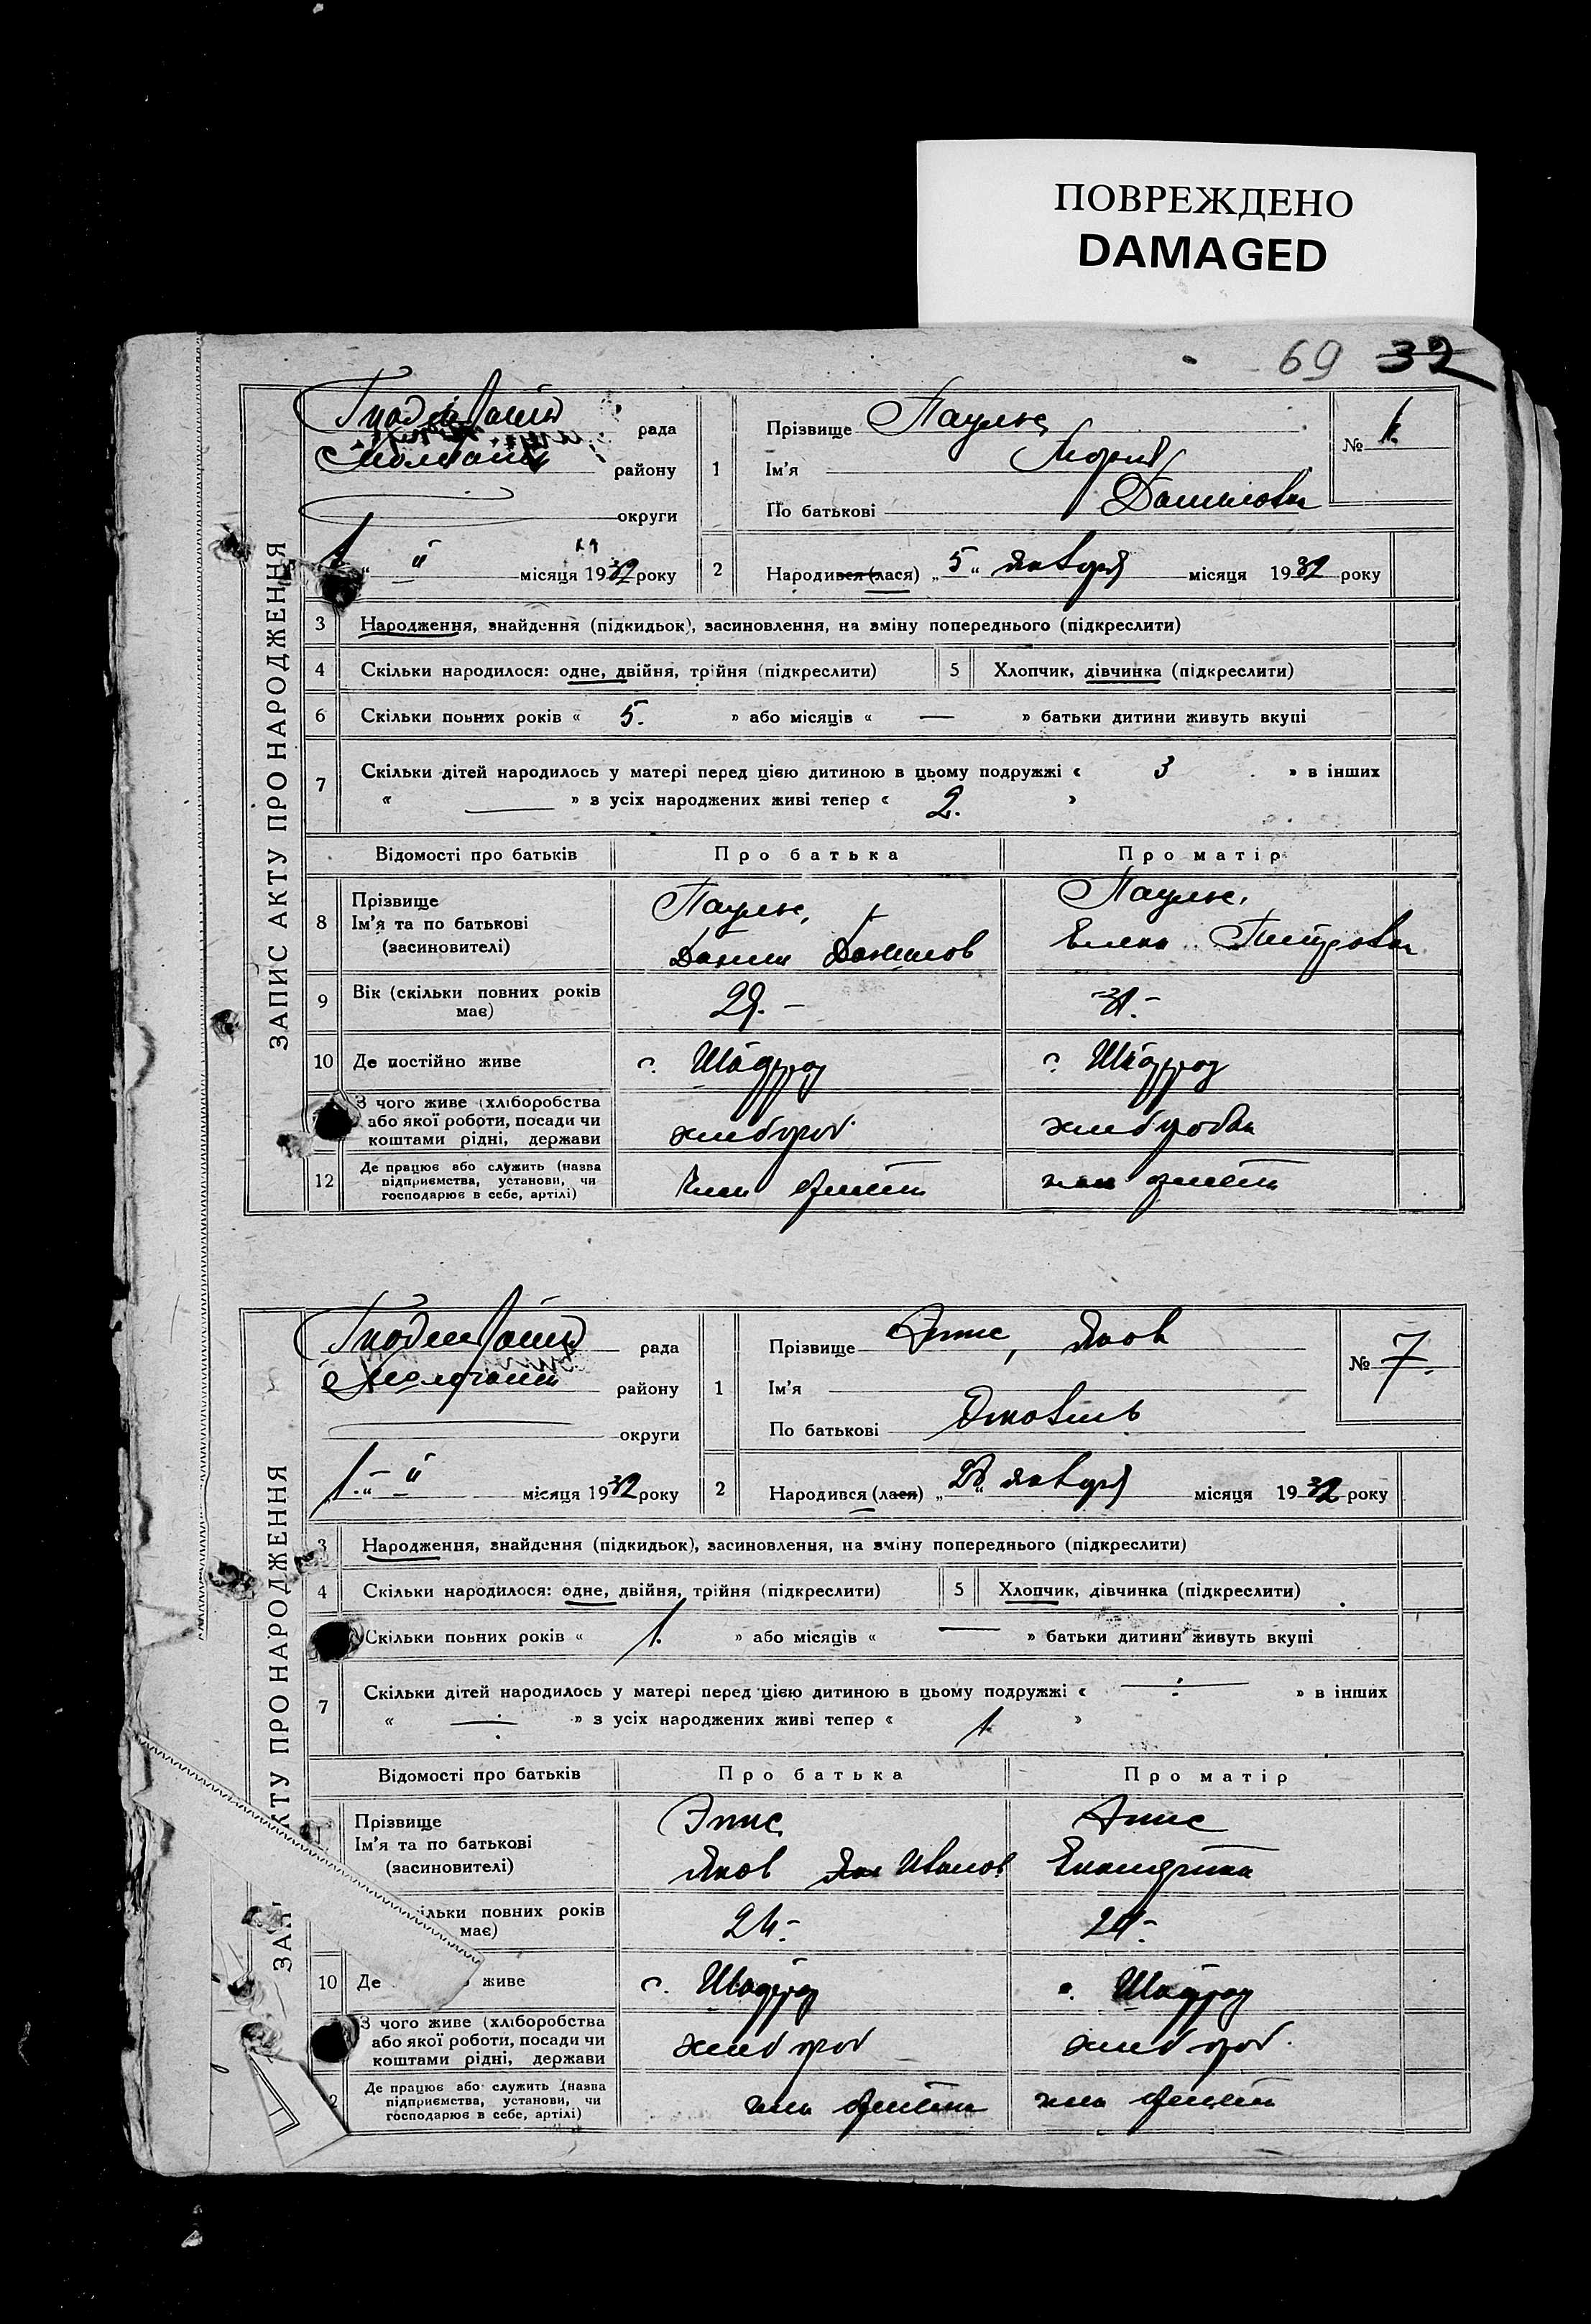 ПОВРЕЖДЕНО
DAMAGED
69 32
ЗАПИС АКТУ ПРО НАРОДЖЕННЯ
рада
району
округи
1 " II місяця 1932 року
1 Прізвище Паульс
Ім'я Мария
По батькові Даниловна
№
2 Народився (лася) „5“ января місяця 1932 року
3 Народження, знайдення (підкидьок), засиновлення, на зміну попереднього (підкреслити)
4 Скільки народилося: одне, двійня, трійня (підкреслити)
5 Хлопчик, дівчинка (підкреслити)
6 Скільки повних років « 5. » або місяців « — » батьки дитини живуть вкупі
7 Скільки дітей народилось у матері перед цією дитиною в цьому подружжі « 3 » в інших
« — » з усіх народжених живі тепер « 2. »
Відомості про батьків Про батька Про матір
8 Прізвище Паульс, Паульс,
Ім'я та по батькові Данил Данилов Елена Петровна
(засиновителі)
9 Вік (скільки повних років 29.– 31.–
має)
10 Де постійно живе с. с.
З чого живе (хліборобства
або якої роботи, посади чи хлебороб хлебробка
коштами рідні, держави
12 Де працює або служить (назва
підприємства, установи, чи член артели член артели
господарює в себе, артілі)
КТУ ПРО НАРОДЖЕННЯ
ЗАП
рада
району
округи
1.– II місяця 1932 року
1 Прізвище Эппс, Яков
Ім'я
По батькові Яковлевич
№ 7.
2 Народився (лася) января місяця 1932 року
3 Народження, знайдення (підкидьок), засиновлення, на зміну попереднього (підкреслити)
4 Скільки народилося: одне, двійня, трійня (підкреслити)
5 Хлопчик, дівчинка (підкреслити)
Скільки повних років « 1. » або місяців « — » батьки дитини живуть вкупі
7 Скільки дітей народилось у матері перед цією дитиною в цьому подружжі « ÷ » в інших
« ÷ » з усіх народжених живі тепер « 1 »
Відомості про батьків Про батька Про матір
Прізвище Эппс Эппс
Ім'я та по батькові Яков Иванов Екатерина
(засиновителі)
ільки повних років 24.– 24.–
має)
10 Де живе с. с.
З чого живе (хліборобства
або якої роботи, посади чи хлебороб хлебороб
коштами рідні, держави
2 Де працює або служить (назва
підприємства, установи, чи член артели член артели
господарює в себе, артілі)